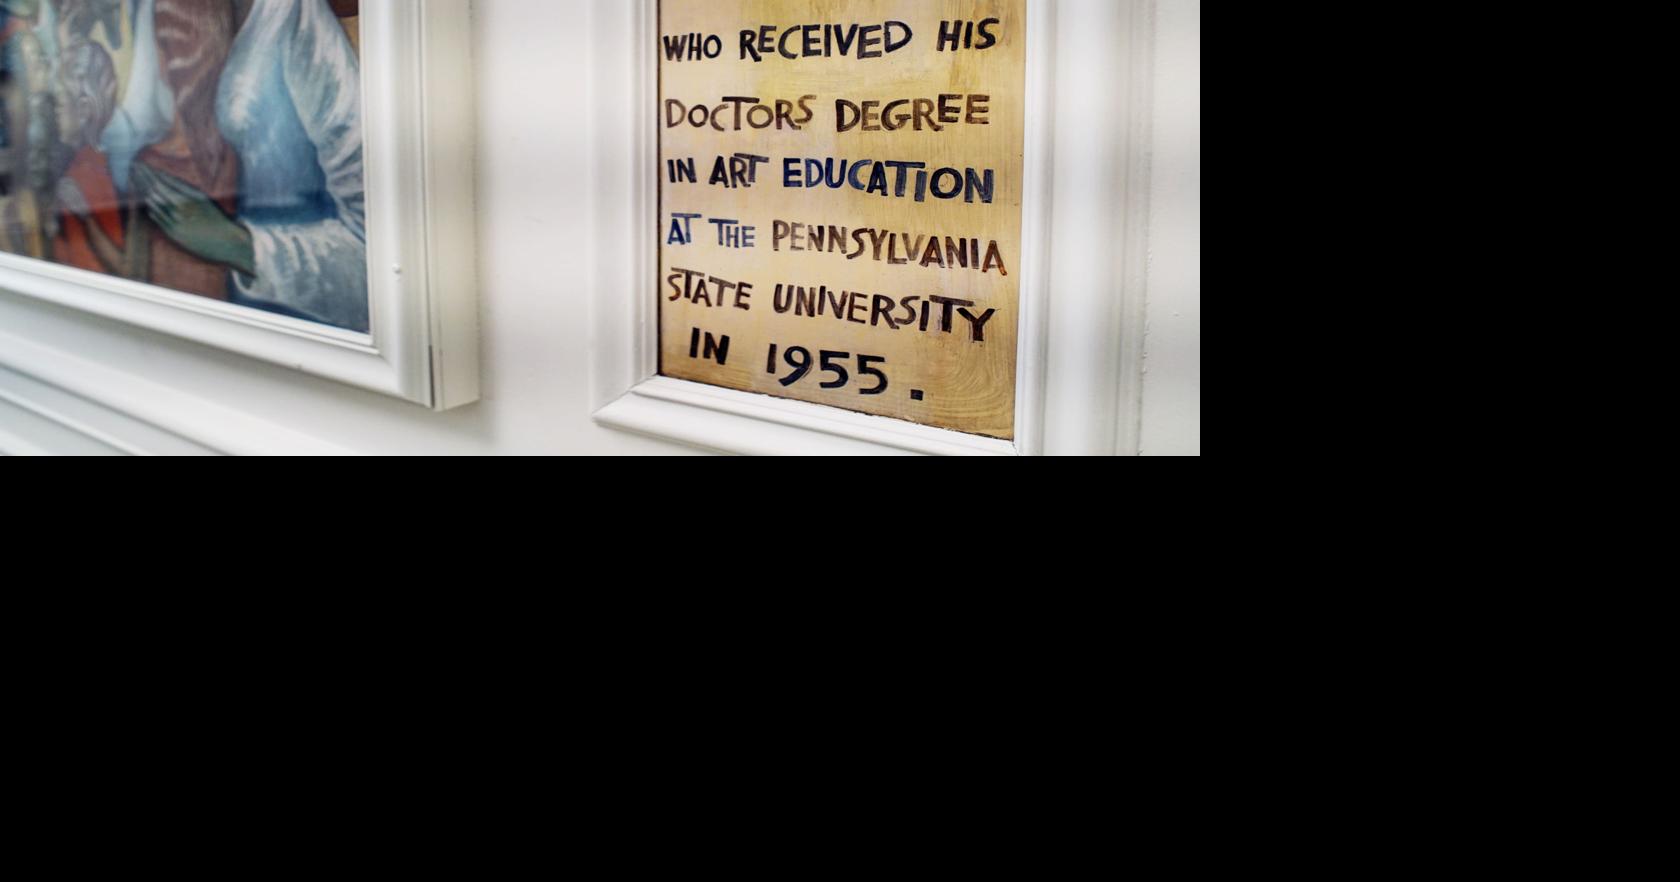 WHO RECEIVED HIS
DOCTORS DEGREE
IN ART EDUCATION
AT THE PENNSYLVANIA
STATE UNIVERSITY
IN 1955.